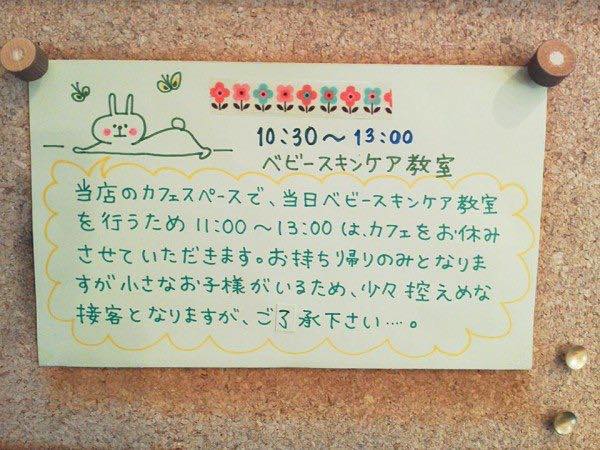 10:30～13:00
ベビースキンケア教室
当店のカフェスペースで、当日ベビースキンケア教室
を行うため 11:00～13:00 は、カフェをお休み
させていただきます。お持ち帰りのみとなりま
すが小さなお子様がいるため、少々控えめな
接客となりますが、ご了承下さい…。